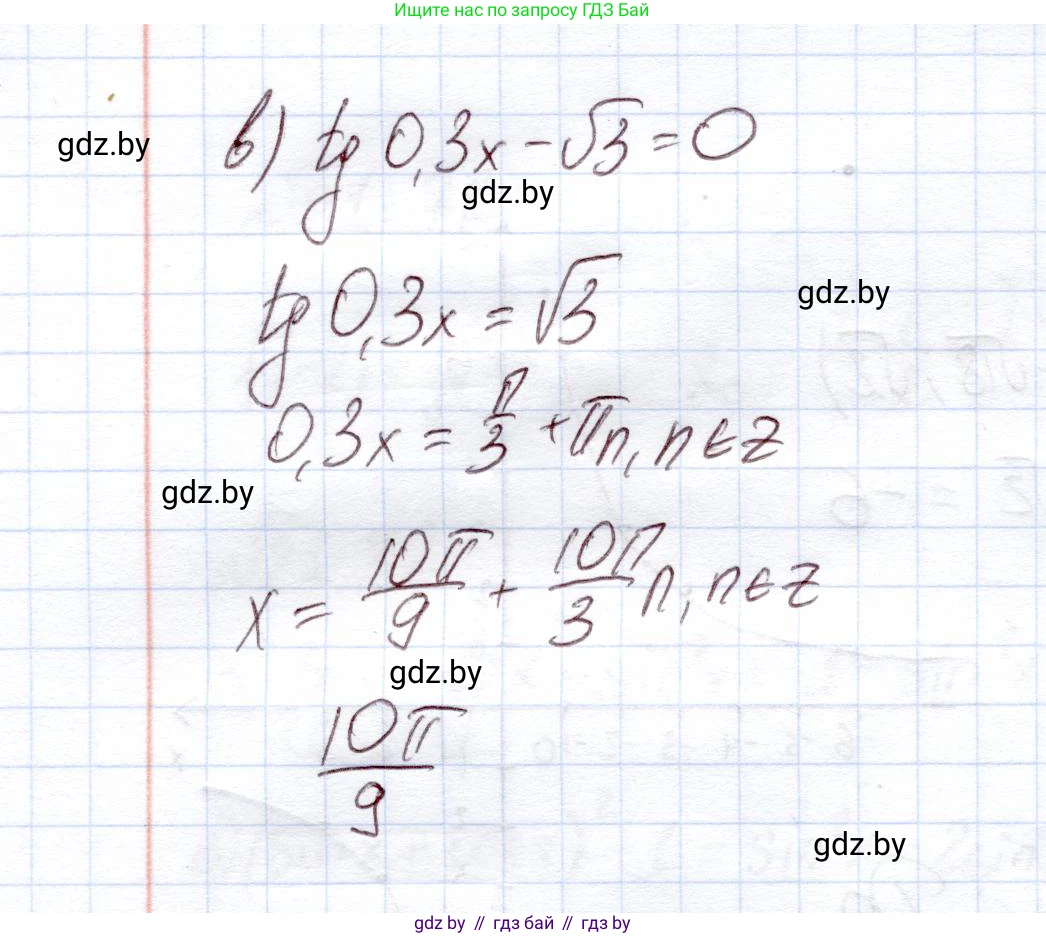 Ищите нас по запросу ГДЗ Бай
в) tg 0,3x - √3 = 0
gdz.by
gdz.by
tg 0,3x = √3
gdz.by
0,3x = π/3 + πn, n ∈ z
gdz.by
x = 10π/9 + 10π/3 n, n ∈ z
gdz.by
10π/9
gdz.by
gdz by // гдз бай // гдз by